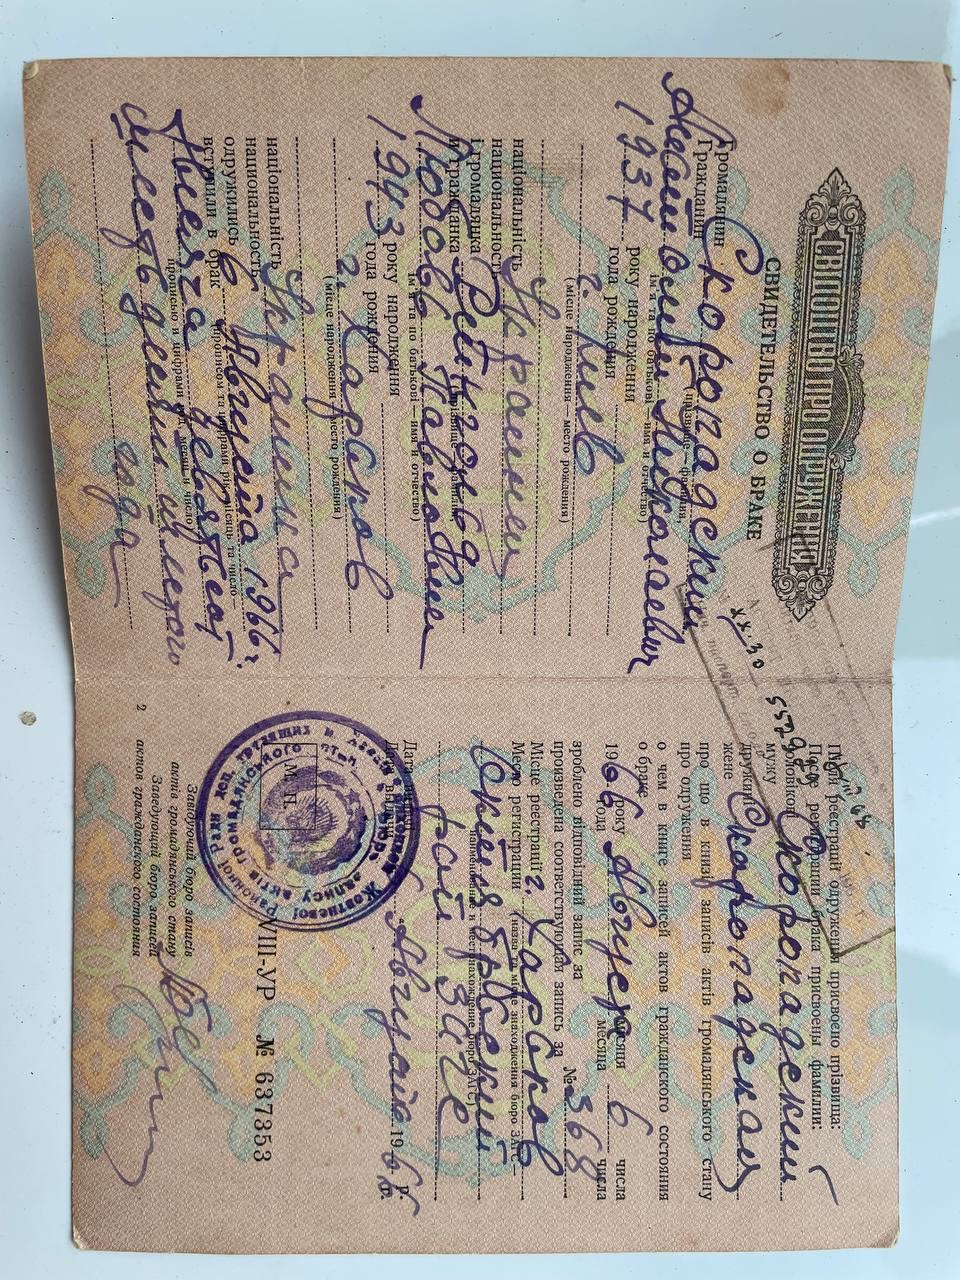 СВІДОЦТВО ПРО ОДРУЖЕННЯ
СВИДЕТЕЛЬСТВО О БРАКЕ
Громадянин
Гражданин Скоропадский
(прізвище — фамилия,
Анатолий Николаевич
ім'я та по батькові — имя и отчество)
1937 року народження
года рождения
г. Киев
(місце народження — место рождения)
національність
национальность Украинец
і громадянка
и гражданка
(прізвище — фамилия,
Любовь Павловна
ім'я та по батькові — имя и отчество)
1943 року народження
года рождения
г. Харьков
(місце народження — место рождения)
національність
национальность Украинка
одружились
вступили в брак 6 Августа 1966 г.
(прописом та цифрами рік, місяць та число —
прописью и цифрами год, месяц и число)
Тысяча девятсот
шестьдесят шестого
года
Після реєстрації одруження присвоєно прізвища:
После регистрации брака присвоены фамилии:
чоловікові
мужу Скоропадский
дружині
жене Скоропадская
про що в книзі записів актів громадянського стану
про одруження
о чем в книге записей актов гражданского состояния
о браке
1966 року
года Августа місяця
месяца 6 числа
числа
зроблено відповідний запис за
произведена соответствующая запись за № 368
Місце реєстрації
Место регистрации г. Харьков
(назва та місце знаходження бюро ЗАГС —
наименование и местонахождение бюро ЗАГС)
Октябрьский
рай загс
Дата видачі
Дата выдачи 6 Августа 1966 р.
г.
М. П.
VIII-УР № 637353
Завідуючий бюро записів
актів громадянського стану
Заведующий бюро записей
актов гражданского состояния
2